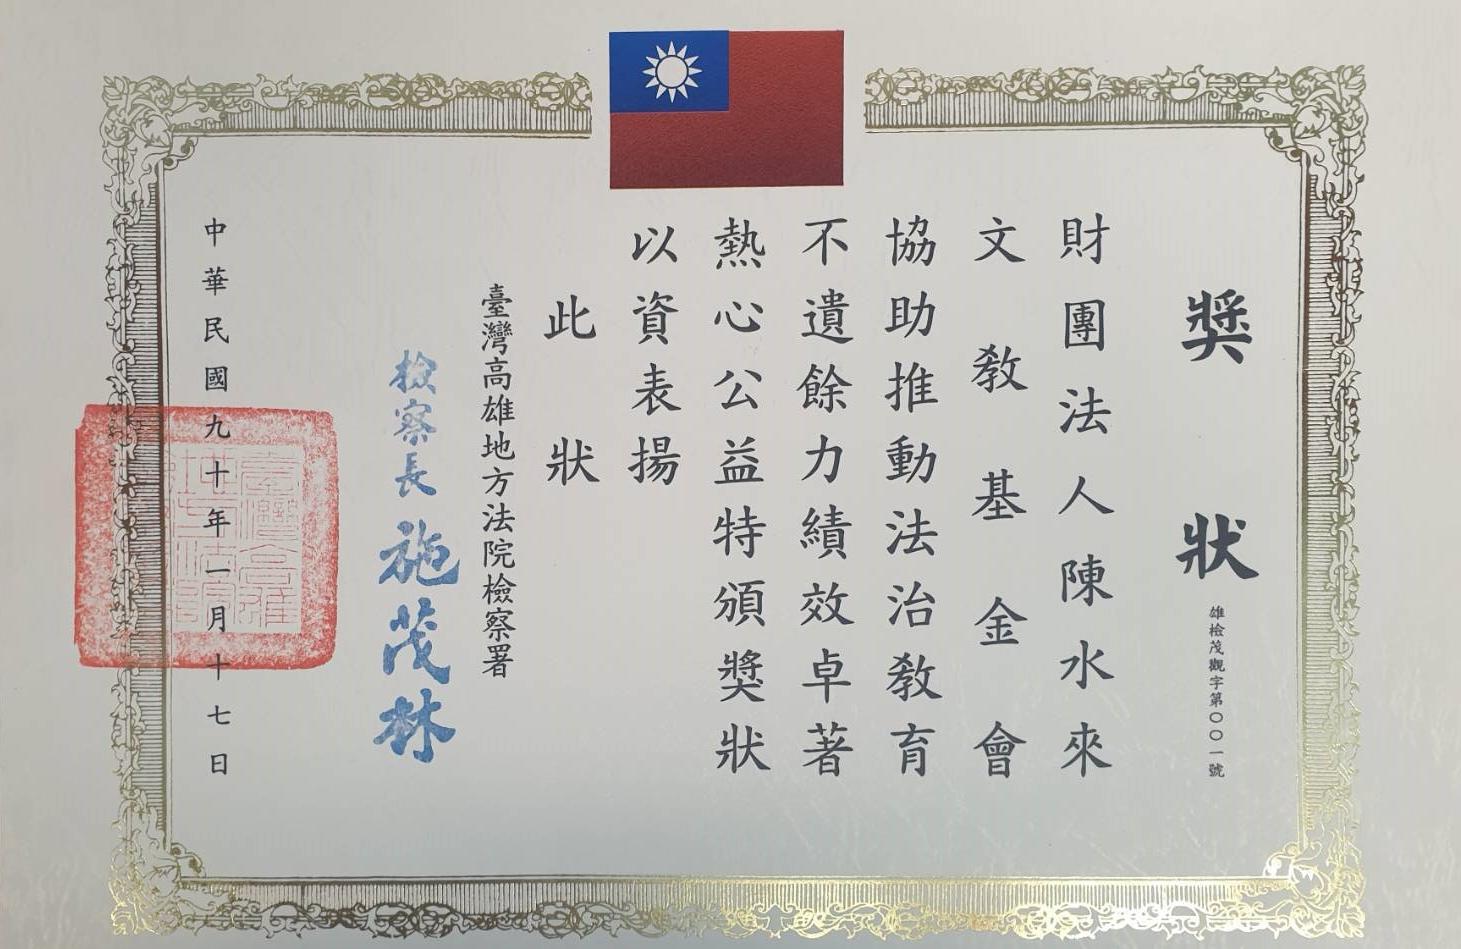 獎狀
雄檢茂觀字第〇〇一號
財團法人陳水來
文教基金會
協助推動法治教育
不遺餘力績效卓著
熱心公益特頒獎狀
以資表揚
此狀
臺灣高雄地方法院檢察署
檢察長施茂林
中華民國九十年一月十七日